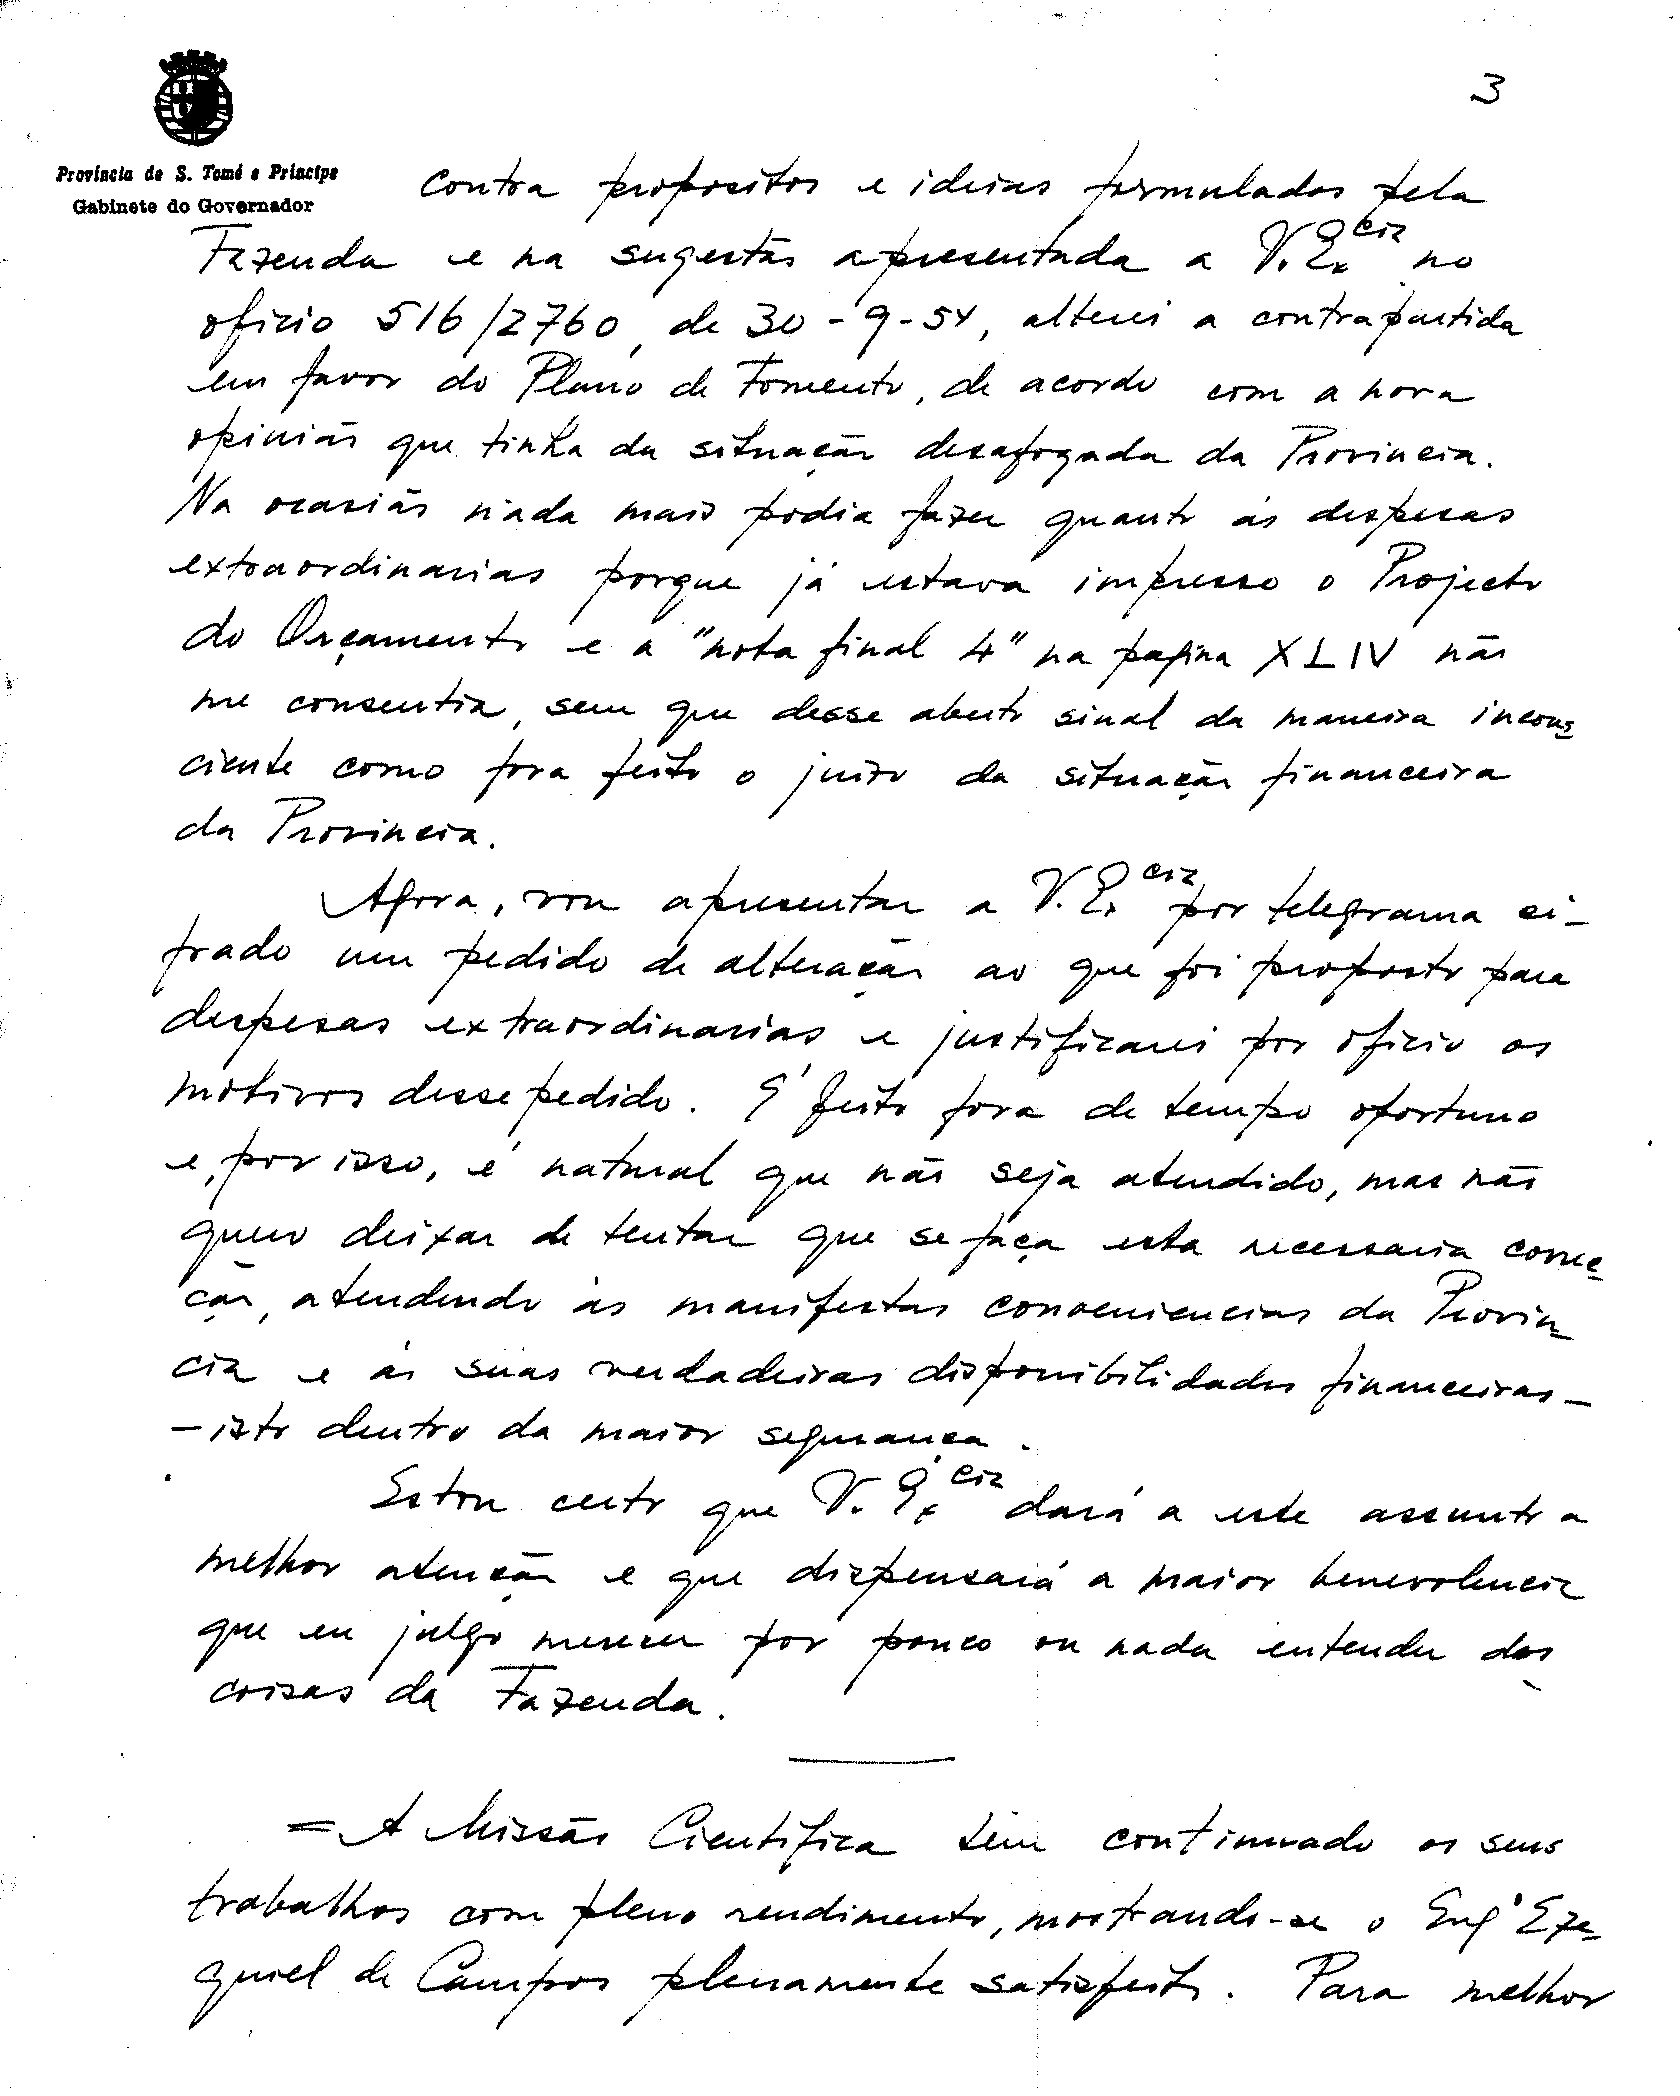 3
Província de S. Tomé e Príncipe
Gabinete do Governador
contra propositos e ideias formulados pela
Fazenda e na sugestão apresentada a V. Ex.cia no
oficio 516/2760, de 30-9-54, alterei a contrapartida
em favor do Plano de Fomento, de acordo com a nova
opinião que tinha da situação desafogada da Provincia.
Na ocasião nada mais podia fazer quanto ás despesas
extraordinarias porque já estava impresso o Projecto
do Orçamento e a "nota final 4" na pagina XLIV não
me consentia, sem que desse aberto sinal da maneira incons-
ciente como fora feito o juizo da situação financeira
da Provincia.
Agora, vou apresentar a V. Ex.cia por telegrama ci-
frado um pedido de alteração ao que foi proposto para
despesas extraordinarias e justificarei por oficio os
motivos desse pedido. É feito fora de tempo oportuno
e, por isso, é natural que não seja atendido, mas não
quero deixar de tentar que se faça esta necessaria correc-
ção, atendendo ás manifestas conveniencias da Provin-
cia e ás suas verdadeiras disponibilidades financeiras –
– isto dentro da maior segurança.
Estou certo que V. Ex.cia dará a este assunto a
melhor atenção e que dispensará a maior benevolencia
que eu julgo merecer por pouco ou nada entender das
coisas da Fazenda.
= A Missão Cientifica tem continuado os seus
trabalhos com pleno rendimento, mostrando-se o Engº Eze-
quiel de Campos plenamente satisfeito. Para melhor